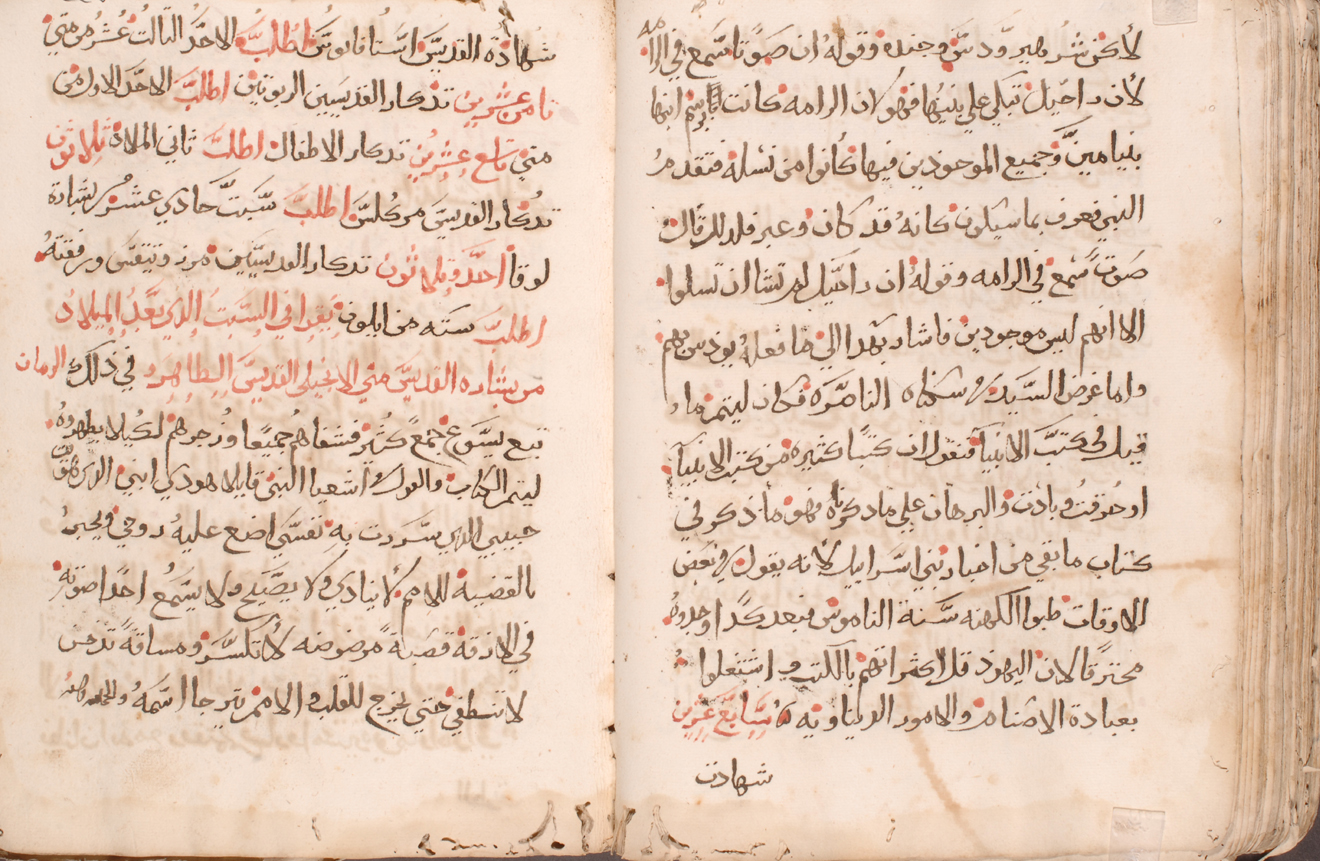 لأكن شر هيرودس وجنده وقوله ان صوتا سمع في الرامه
لأن راحيل تبكي علي بنيها فهو لان الرامه كانت برسم ابنها
بنيامين وجميع الموجودين فيها كانوا من نسله فتقدم
النبي فعرف بما سيكون كانه قد كان وعبر فلذلك قال
صوت سمع في الرامه وقوله ان راحيل لم تشا ان تسلوا
الا انهم ليس موجودين فاشار بهدا الي ما فعله يودس بهم
واما غرض السيد في سكناه الناصره فكان ليتم ما
قيل في كتب الانبيا فنقول ان كتبا كثيره من كتب الانبيا
احرقت وبادت والبرهان علي ما ذكرناه فهو ما ذكر في
كتاب ما بقي من اخبار بني اسرايل لأنه يقول في بعض
الاوقات طلبوا الكهنه سنة الناموس فبعد كدا وجدوه
محترقا لان اليهود قل اكتراتهم بالكتب واشتغلوا
بعبادة الاصنام والامور الدنياويه سابع عشرين
شهادت
شهادة القديس استافانوس اطلب الاحد التالت عشر من متي
تامن عشرين تدكار القديسين الربوتين اطلب الاحد الاول من
متي تاسع عشرين تدكار الاطفال اطلب تاني الملاد ثلاثون
تدكار القديس مركلس اطلب سبت حادي عشر بشارة
لوقا احد وثلاثون تدكار القديسين ورفقته
اطلب سته من ايلول يقرا في السبت الذي بعد الميلاد
من بشاره القديس متي الانجيلي القديس الطاهر في ذلك الزمان
تبع يسوع جمع كثير فشفاهم جميعا وزجرهم لكيلا يظهروه
ليتم الكتاب والقول اشعيا النبي قايلا هودي ابني الذي
حبيبي الذي سررت به نفسي اضع عليه روحي ويخبر
بالقضيه للامم لا ينادي ولا يصيح ولا يسمع احد صوته
في الازقه قصبه مرضوضه لا تكسر ومساقة تدخن
لا تنطفي حتي يخرج للغلب والامم تترجا اسمه